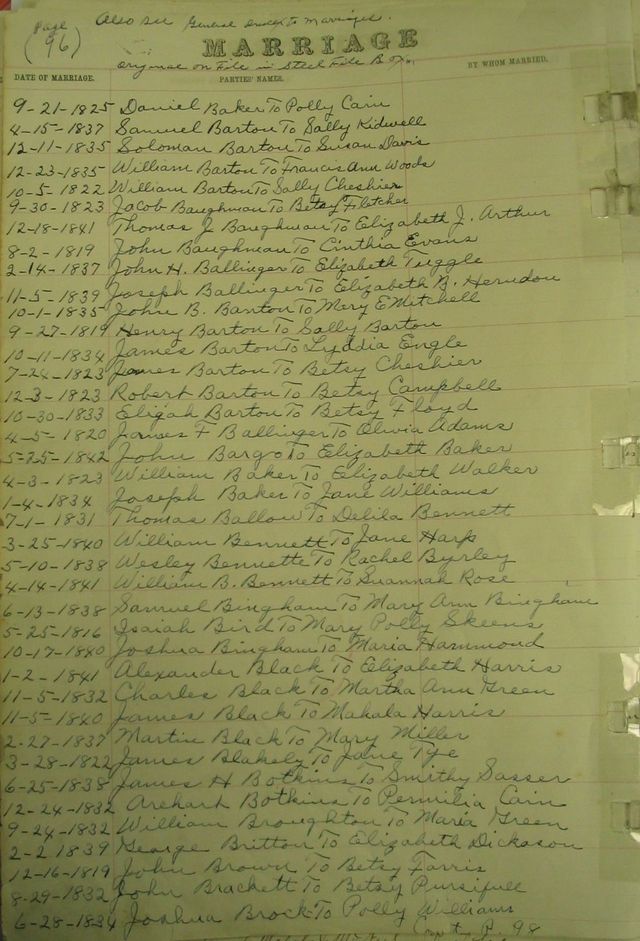 Page
(96)
Also see General Index to Marriages.
MARRIAGE
Original on File in Steel File Box.
DATE OF MARRIAGE. PARTIES' NAMES. BY WHOM MARRIED.
9-21-1825 Daniel Baker To Polly Cain
4-15-1837 Samuel Barton To Sally Kidwell
12-11-1835 Soloman Barton To Susan Davis
12-23-1835 William Barton To Francis Ann Woods
10-5-1822 William Barton To Sally Cheshier
9-30-1823 Jacob Baughman To Betsy Fletcher
12-18-1841 Thomas J. Baughman To Elizabeth J. Arthur
8-2-1819 John Baughman To Cinthia Evans
2-14-1837 John H. Ballinger To Elizabeth Tuggle
11-5-1839 Joseph Ballinger To Elizabeth B. Herndon
10-1-1835 John B. Banton To Mery E Mitchell
9-27-1819 Henry Barton To Sally Barton
10-11-1834 James Barton To Lyddia Engle
7-24-1823 James Barton To Betsy Cheshier
12-3-1823 Robert Barton To Betsy Campbell
10-30-1833 Elijah Barton To Betsy Floyd
4-5-1820 James F Ballinger To Olivia Adams
5-25-1842 John Bargo To Elizabeth Baker
4-3-1823 William Baker To Elizabeth Walker
1-4-1834 Joseph Baker To Jane Williams
7-1-1831 Thomas Ballou To Delila Bennett
3-25-1840 William Bennett To Jane Harp
5-10-1838 Wesley Bennette To Rachel Byrley
4-14-1841 William B. Bennett To Suannah Rose
6-13-1838 Samuel Bingham To Mary Ann Bingham
5-25-1816 Isaiah Bird To Mary Polly Skeens
10-17-1840 Joshua Bingham To Maria Hammond
1-2-1841 Alexander Black To Elizabeth Harris
11-5-1832 Charles Black To Martha Ann Green
11-5-1840 James Black To Mahala Harris
2-27-1837 Martin Black To Mary Miller
3-28-1822 James Blakely To Jane Tye
6-25-1838 James H Botkins To Smirthy Sasser
12-24-1832 Arehart Botkins To Permilia Cain
9-24-1832 William Broughton To Maria Green
2-2 1839 George Britton To Elizabeth Dickason
12-16-1819 John Brown To Betsy Farris
8-29-1832 John Brackett To Betsy Pursifull
6-28-1834 Joshua Brock To Polly Williams
P. 98